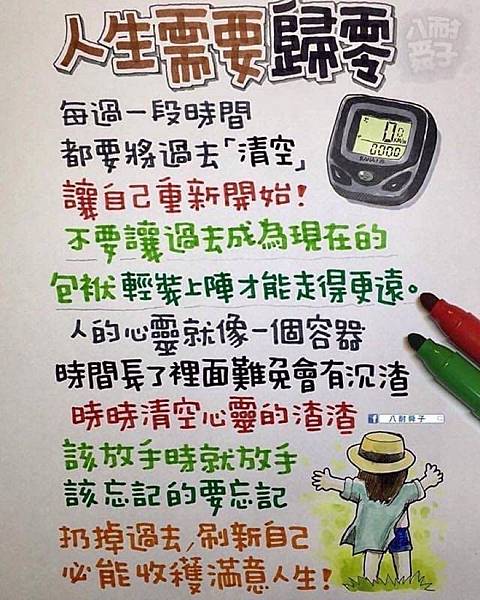 人生需要歸零
八耐舜子
每過一段時間
都要將過去「清空」
讓自己重新開始!
不要讓過去成為現在的
包袱 輕裝上陣才能走得更遠。
人的心靈就像一個容器
時間長了裡面難免會有沉渣
時時清空心靈的渣渣
八耐舜子
該放手時就放手
該忘記的要忘記
扔掉過去,刷新自己
必能收穫滿意人生!
0.0
0000